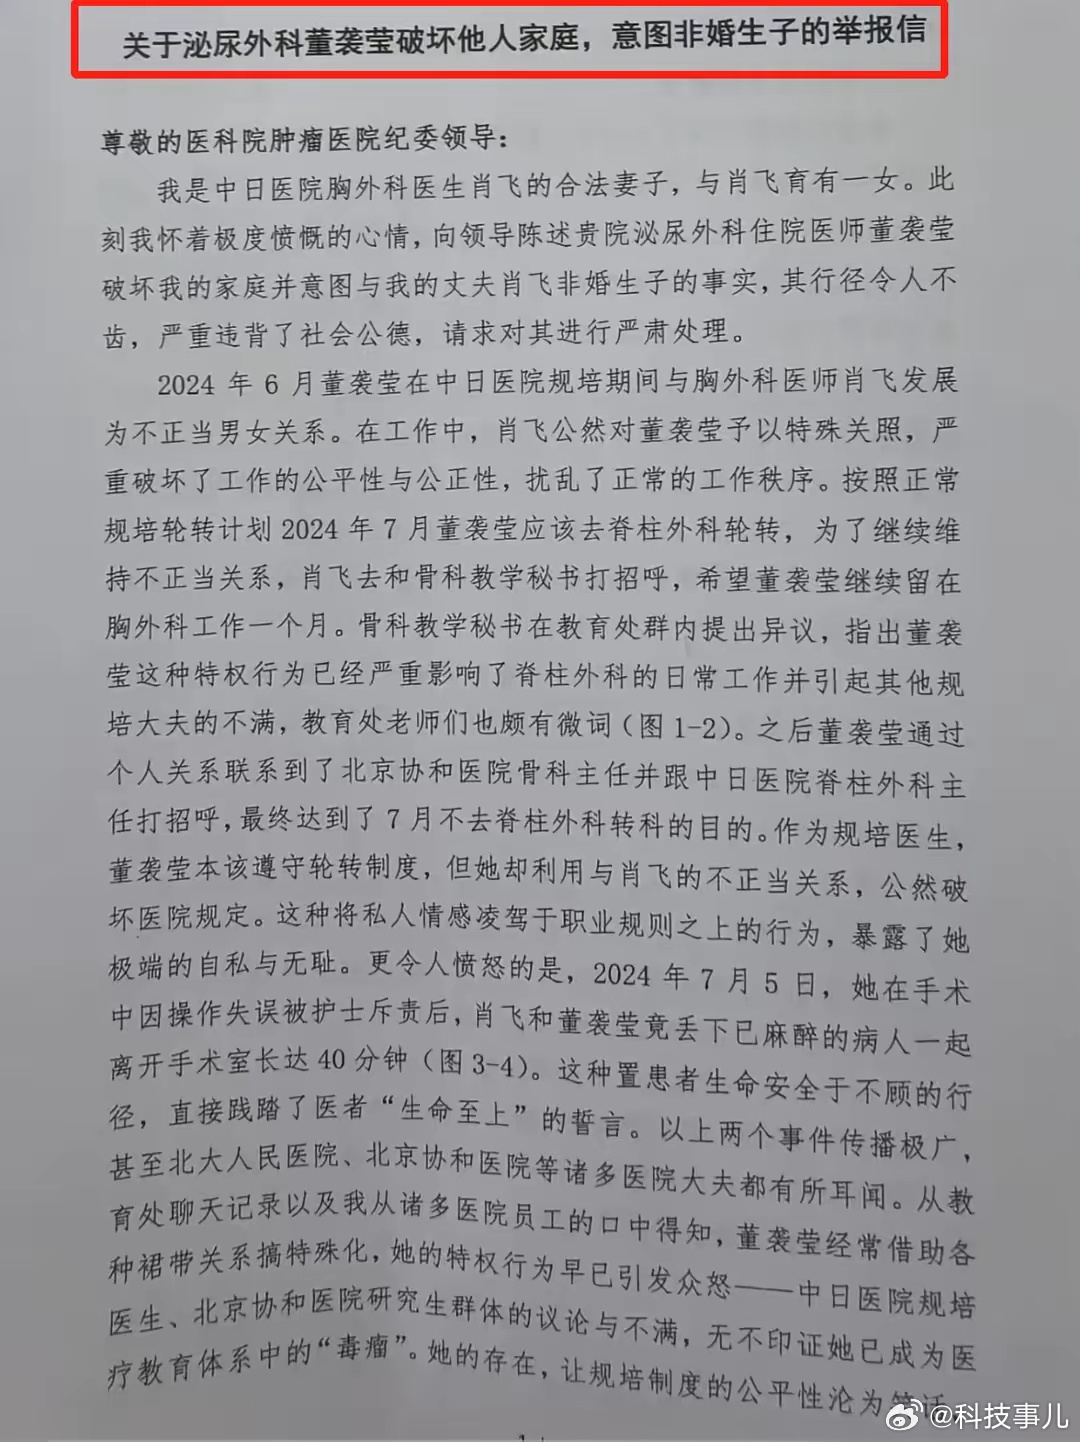 关于泌尿外科董袭莹破坏他人家庭，意图非婚生子的举报信
尊敬的医科院肿瘤医院纪委领导：
我是中日医院胸外科医生肖飞的合法妻子，与肖飞育有一女。此
刻我怀着极度愤慨的心情，向领导陈述贵院泌尿外科住院医师董袭莹
破坏我的家庭并意图与我的丈夫肖飞非婚生子的事实，其行径令人不
齿，严重违背了社会公德，请求对其进行严肃处理。
2024 年 6 月董袭莹在中日医院规培期间与胸外科医师肖飞发展
为不正当男女关系。在工作中，肖飞公然对董袭莹予以特殊关照，严
重破坏了工作的公平性与公正性，扰乱了正常的工作秩序。按照正常
规培轮转计划 2024 年 7 月董袭莹应该去脊柱外科轮转，为了继续维
持不正当关系，肖飞去和骨科教学秘书打招呼，希望董袭莹继续留在
胸外科工作一个月。骨科教学秘书在教育处群内提出异议，指出董袭
莹这种特权行为已经严重影响了脊柱外科的日常工作并引起其他规
培大夫的不满，教育处老师们也颇有微词（图 1-2）。之后董袭莹通过
个人关系联系到了北京协和医院骨科主任并跟中日医院脊柱外科主
任打招呼，最终达到了 7 月不去脊柱外科转科的目的。作为规培医生，
董袭莹本该遵守轮转制度，但她却利用与肖飞的不正当关系，公然破
坏医院规定。这种将私人情感凌驾于职业规则之上的行为，暴露了她
极端的自私与无耻。更令人愤怒的是，2024 年 7 月 5 日，她在手术
中因操作失误被护士斥责后，肖飞和董袭莹竟丢下已麻醉的病人一起
离开手术室长达 40 分钟（图 3-4）。这种置患者生命安全于不顾的行
径，直接践踏了医者“生命至上”的誓言。以上两个事件传播极广，
甚至北大人民医院、北京协和医院等诸多医院大夫都有所耳闻。从教
育处聊天记录以及我从诸多医院员工的口中得知，董袭莹经常借助各
种裙带关系搞特殊化，她的特权行为早已引发众怒——中日医院规培
医生、北京协和医院研究生群体的议论与不满，无不印证她已成为医
疗教育体系中的“毒瘤”。她的存在，让规培制度的公平性沦为笑话。
@科技事儿